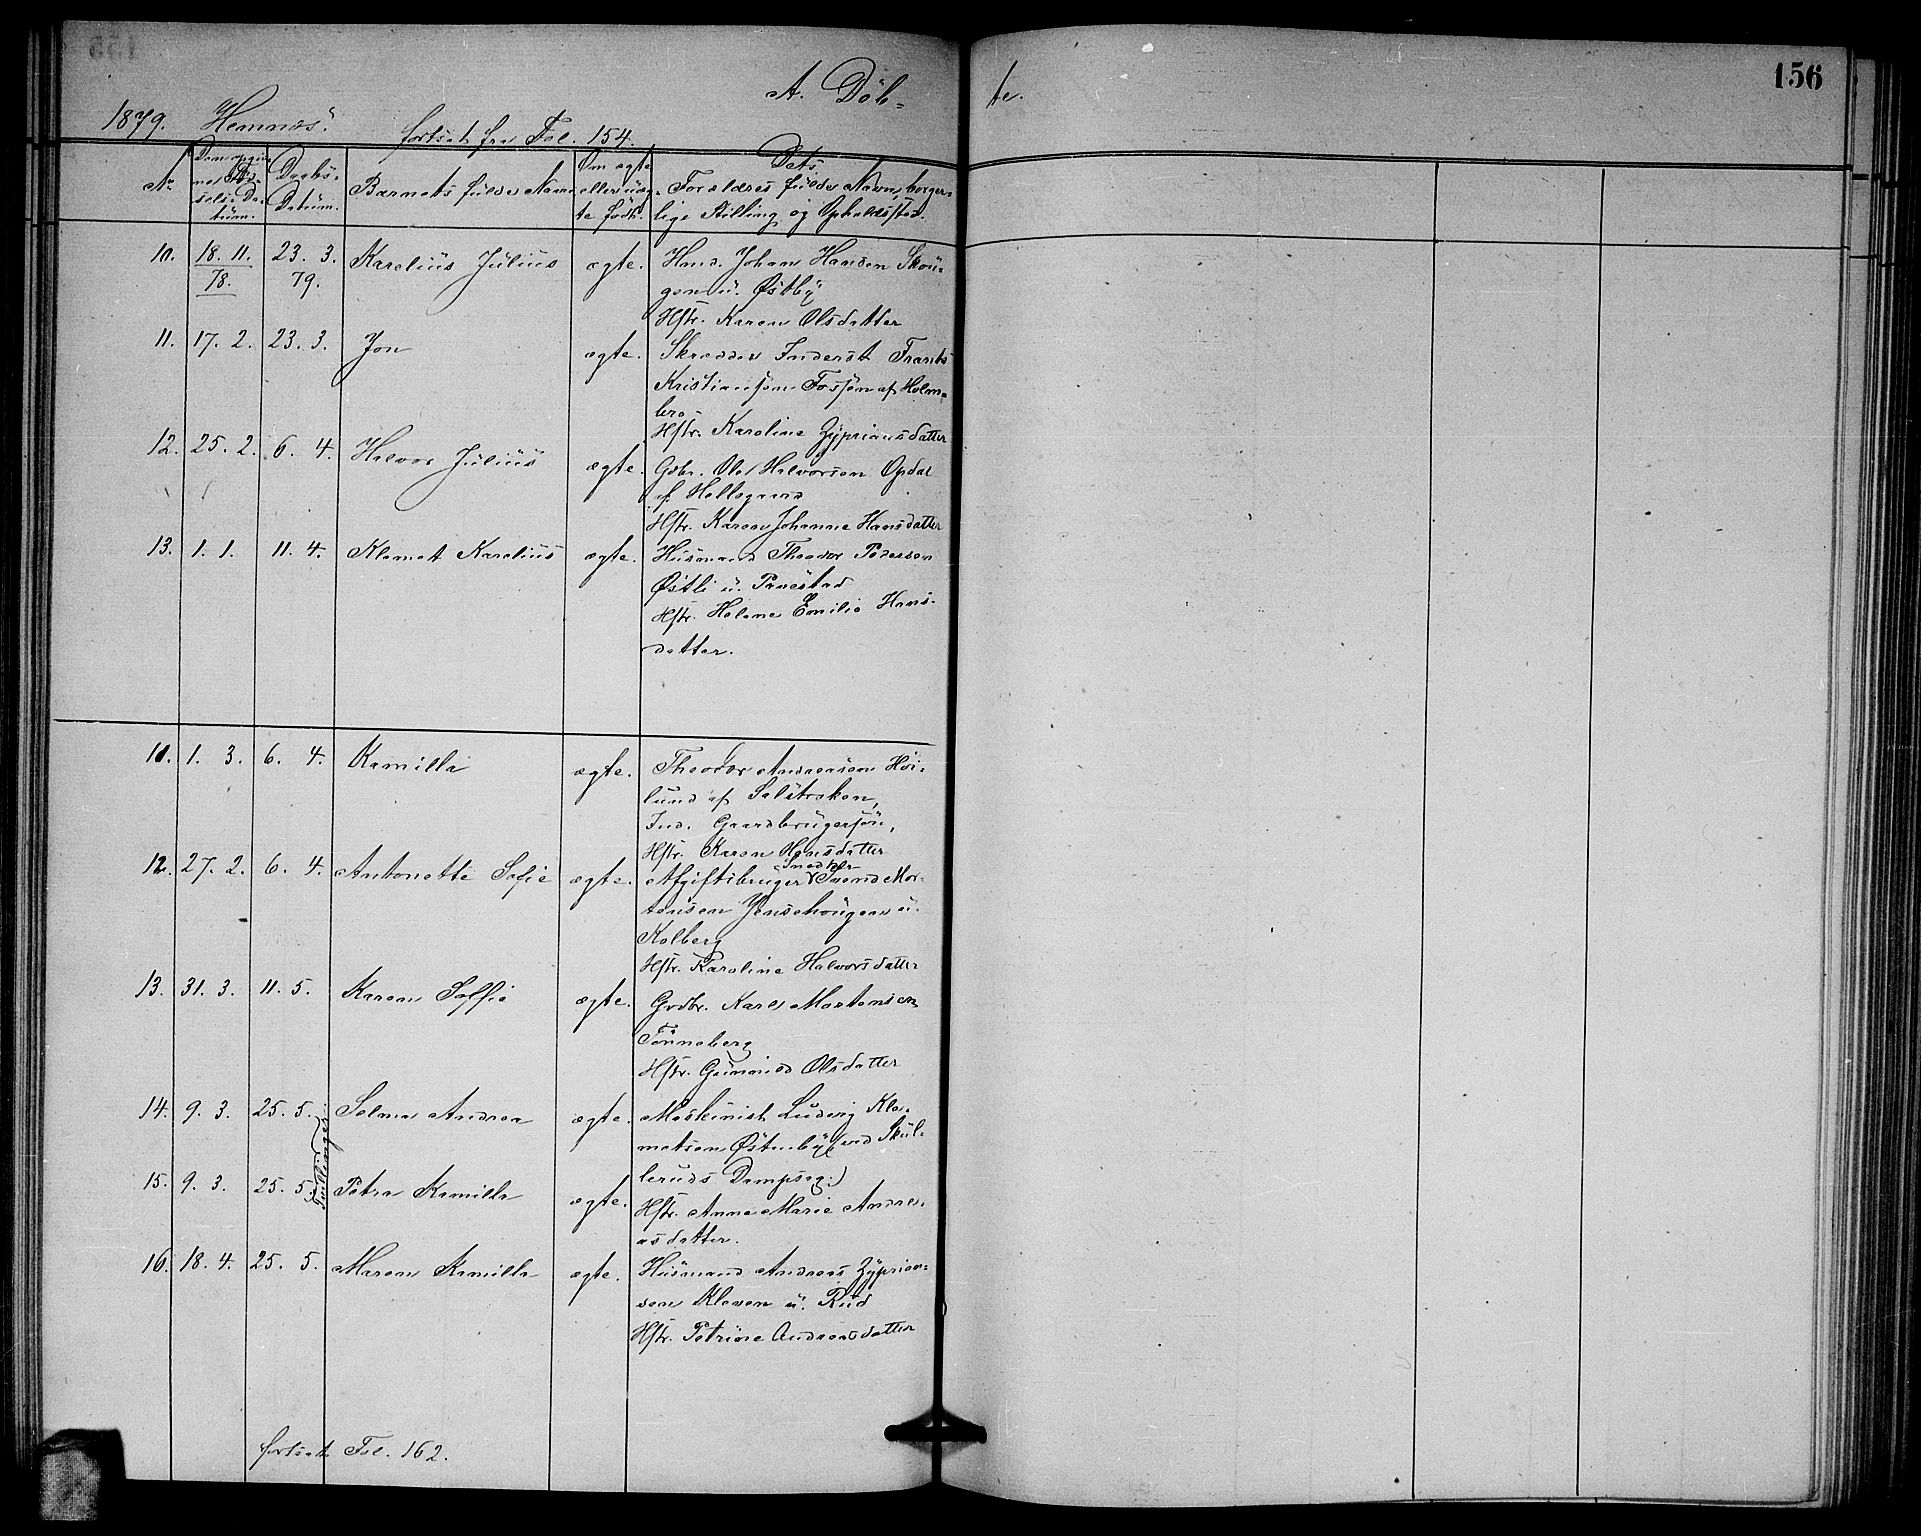 156
A. Döb- te.
1879. Hemnæs. fortsat fra Fol. 154.
No
Den opgiv-
ne Fød-
sels-Da-
tum.
Daabs-
Datum.
Barnets fulde Navn
Om ægte
eller uæg-
te født.
Dets
Forældres fulde Navn, borger-
lige Stilling og Opholdssted.
10. 18. 11. 78. 23. 3. 79. Karelius Julius ægte. Hmd. Johan Hansen Skou-
gen u. Østby
Hstr. Karen Olsdatter
11. 17. 2. 23. 3. Jon ægte. Skrædder Inderst Frants
Kristiansøn Fossøn af Holm-
bro
Hstr. Karoline Zyprians datter
12. 25. 2. 6. 4. Halvor Julius ægte. Gdbr. Ole Halvorsen Opdal
af Hellegaard
Hstr. Karen Johanne Hansdatter
13. 1. 1. 11. 4. Klemet Karelius ægte. Husmand Theodor Pedersen
Østli u. Tanestad
Hstr. Helene Emilie Hans-
datter.
11. 1. 3. 6. 4. Kamilla ægte. Theodor Andreasen Høi-
lund af
Ind. Gaardbrugersøn,
Hstr. Karen Hansdatter
12. 27. 2. 6. 4. Antonette Sofie ægte. Afgiftsbruger & Snedker Svend Mor-
tensen Jensehougen u.
Kolberg
Hstr. Karoline Halvorsdatter
13. 31. 3. 11. 5. Karen Soffie ægte. Gdbr. Karl Martensen
Tønneberg
Hstr. Gunnild Olsdatter
14. 9. 3. 25. 5. Selma Andrea ægte. Maskinist Ludvig Kle-
metsen Østenby (ved Skul-
15. 9. 3. 25. 5. Petra Kamilla ægte. leruds Dampsag.)
Hstr. Anne Marie Andre-
asdatter.
Tvillinger
16. 18. 4. 25. 5. Maren Kamilla ægte. Husmand Andreas Zyprian-
sen Kleven u. Rud
Hstr. Petrine Andreasdatter
fortsat Fol. 162.